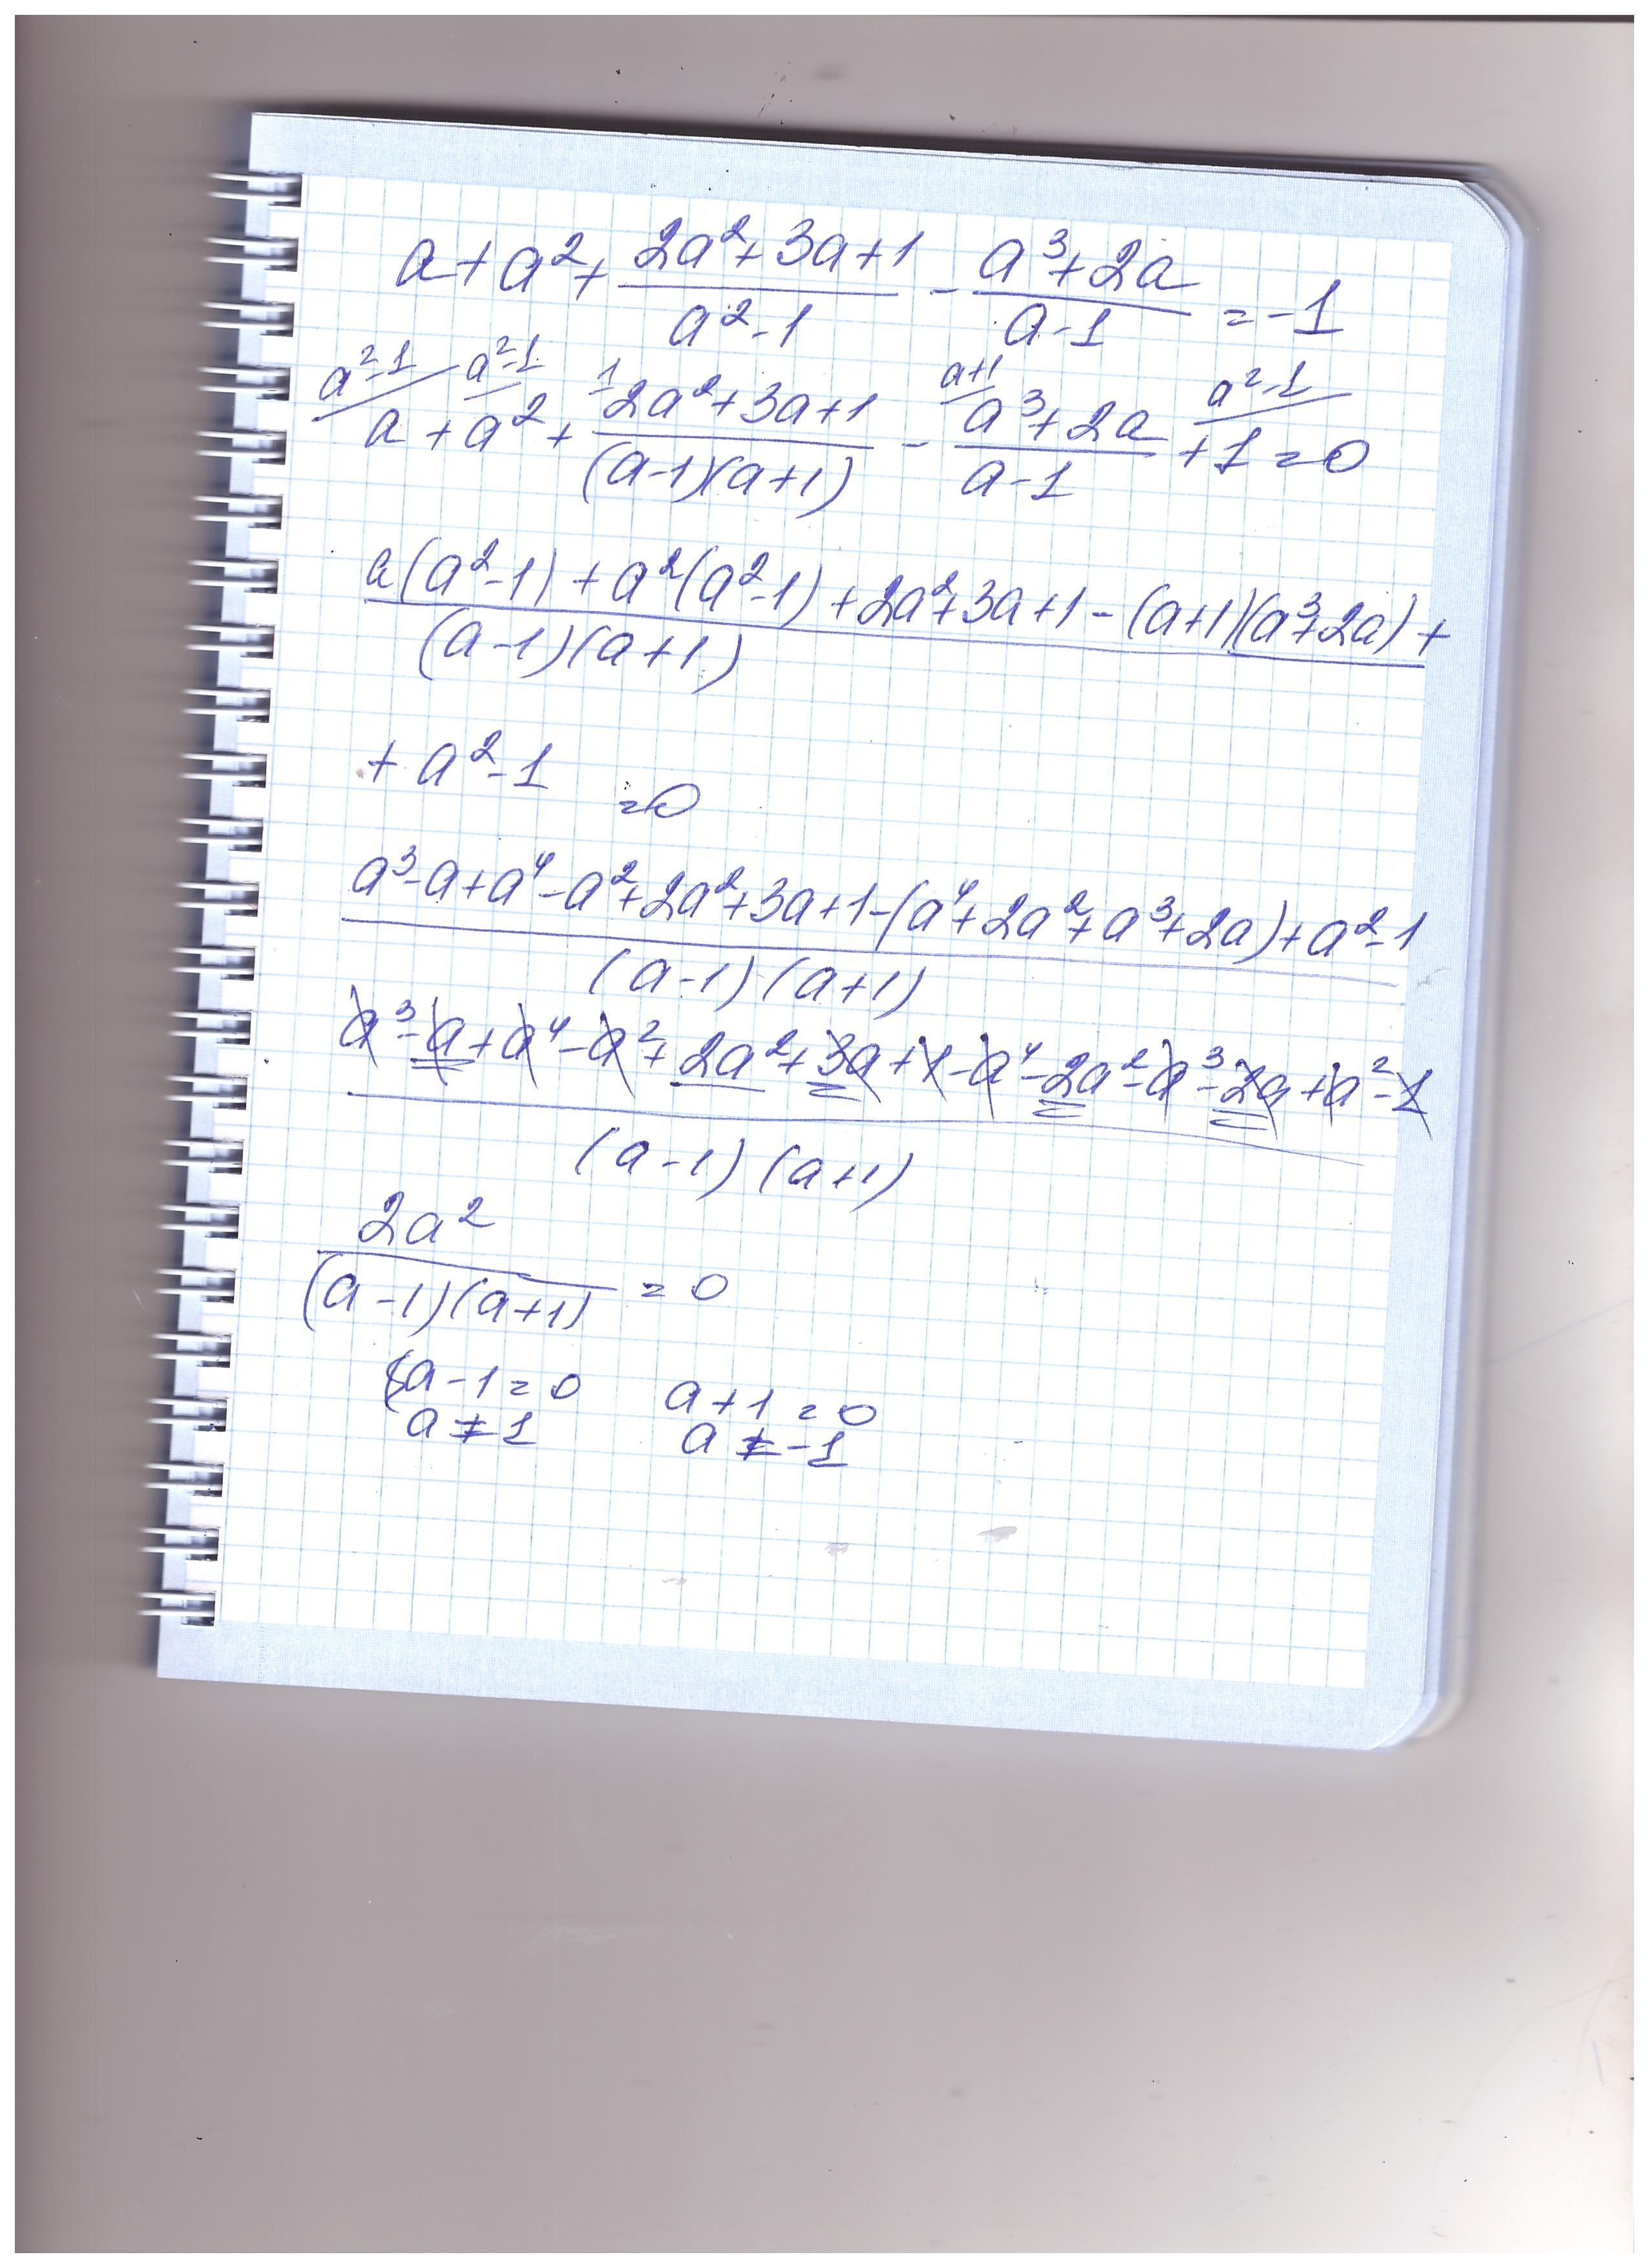 a + a² + (2a² + 3a + 1)/(a² - 1) - (a³ + 2a)/(a - 1) = -1
a²-1 a²-1 1 a+1 a²-1
a + a² + (2a² + 3a + 1)/((a-1)(a+1)) - (a³ + 2a)/(a-1) + 1 = 0
a(a²-1) + a²(a²-1) + 2a² + 3a + 1 - (a+1)(a³+2a) +
(a-1)(a+1)
+ a² - 1 = 0
a³ - a + a⁴ - a² + 2a² + 3a + 1 - (a⁴ + 2a² + a³ + 2a) + a² - 1
(a-1)(a+1)
a³ - a + a⁴ - a² + 2a² + 3a + 1 - a⁴ - 2a² - a³ - 2a + a² - 1
(a-1)(a+1)
2a²
(a-1)(a+1) = 0
a - 1 = 0 a + 1 = 0
a ≠ 1 a ≠ -1